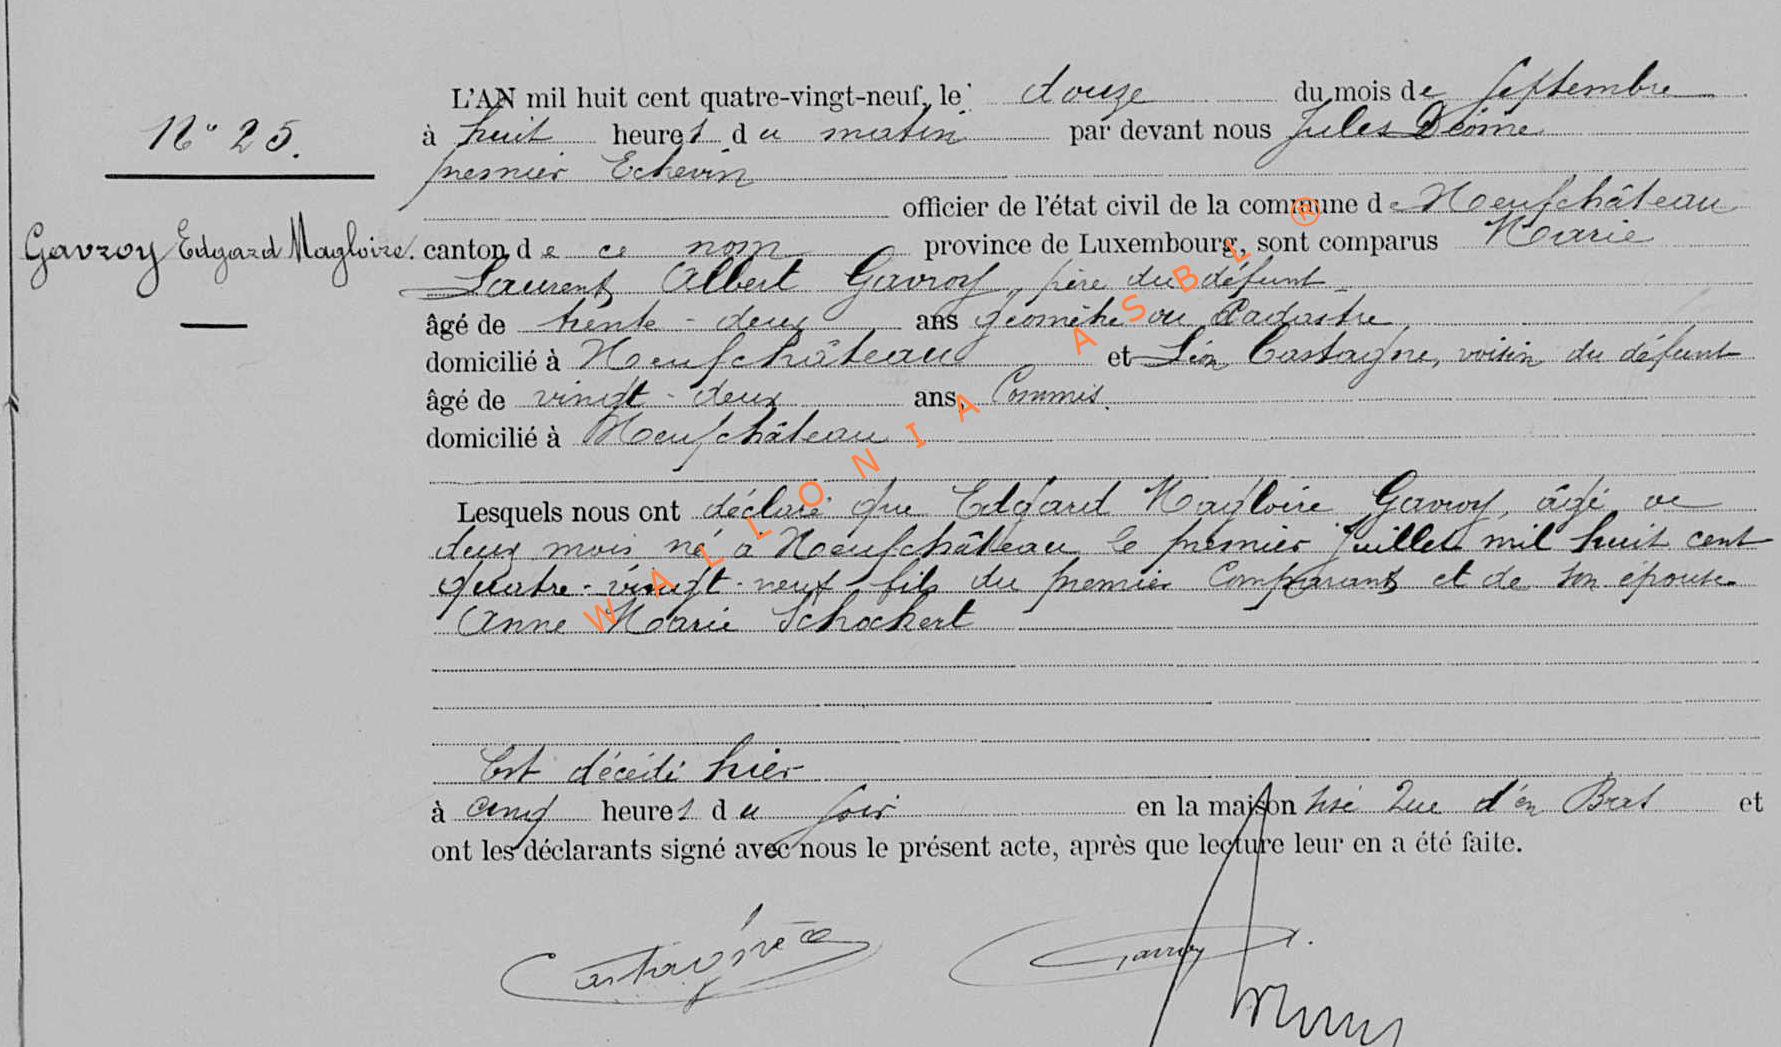 L'AN mil huit cent quatre-vingt-neuf, le douze du mois de Septembre
N° 25.
à huit heures du matin par devant nous Jules
premier Echevin
officier de l'état civil de la commune de Neufchâteau
Gavroy Edgard Magloire.
canton de ce nom province de Luxembourg, sont comparus Marie
Laurent Albert Gavroy, père du défunt
âgé de trente-deux ans géomètre du Cadastre,
domicilié à Neufchâteau et Léon Castagne, voisin du défunt
âgé de vingt-deux ans, Commis.
domicilié à Neufchâteau
Lesquels nous ont déclaré que Edgard Magloire Gavroy, âgé de
deux mois né à Neufchâteau le premier Juillet mil huit cent
quatre-vingt-neuf fils du premier Comparant et de son épouse
Anne Marie Schockert
Est décédé hier
à cinq heures du soir en la maison sise Rue d'en Bas et
ont les déclarants signé avec nous le présent acte, après que lecture leur en a été faite.
Gavroy
WALLONIA ASBL ®